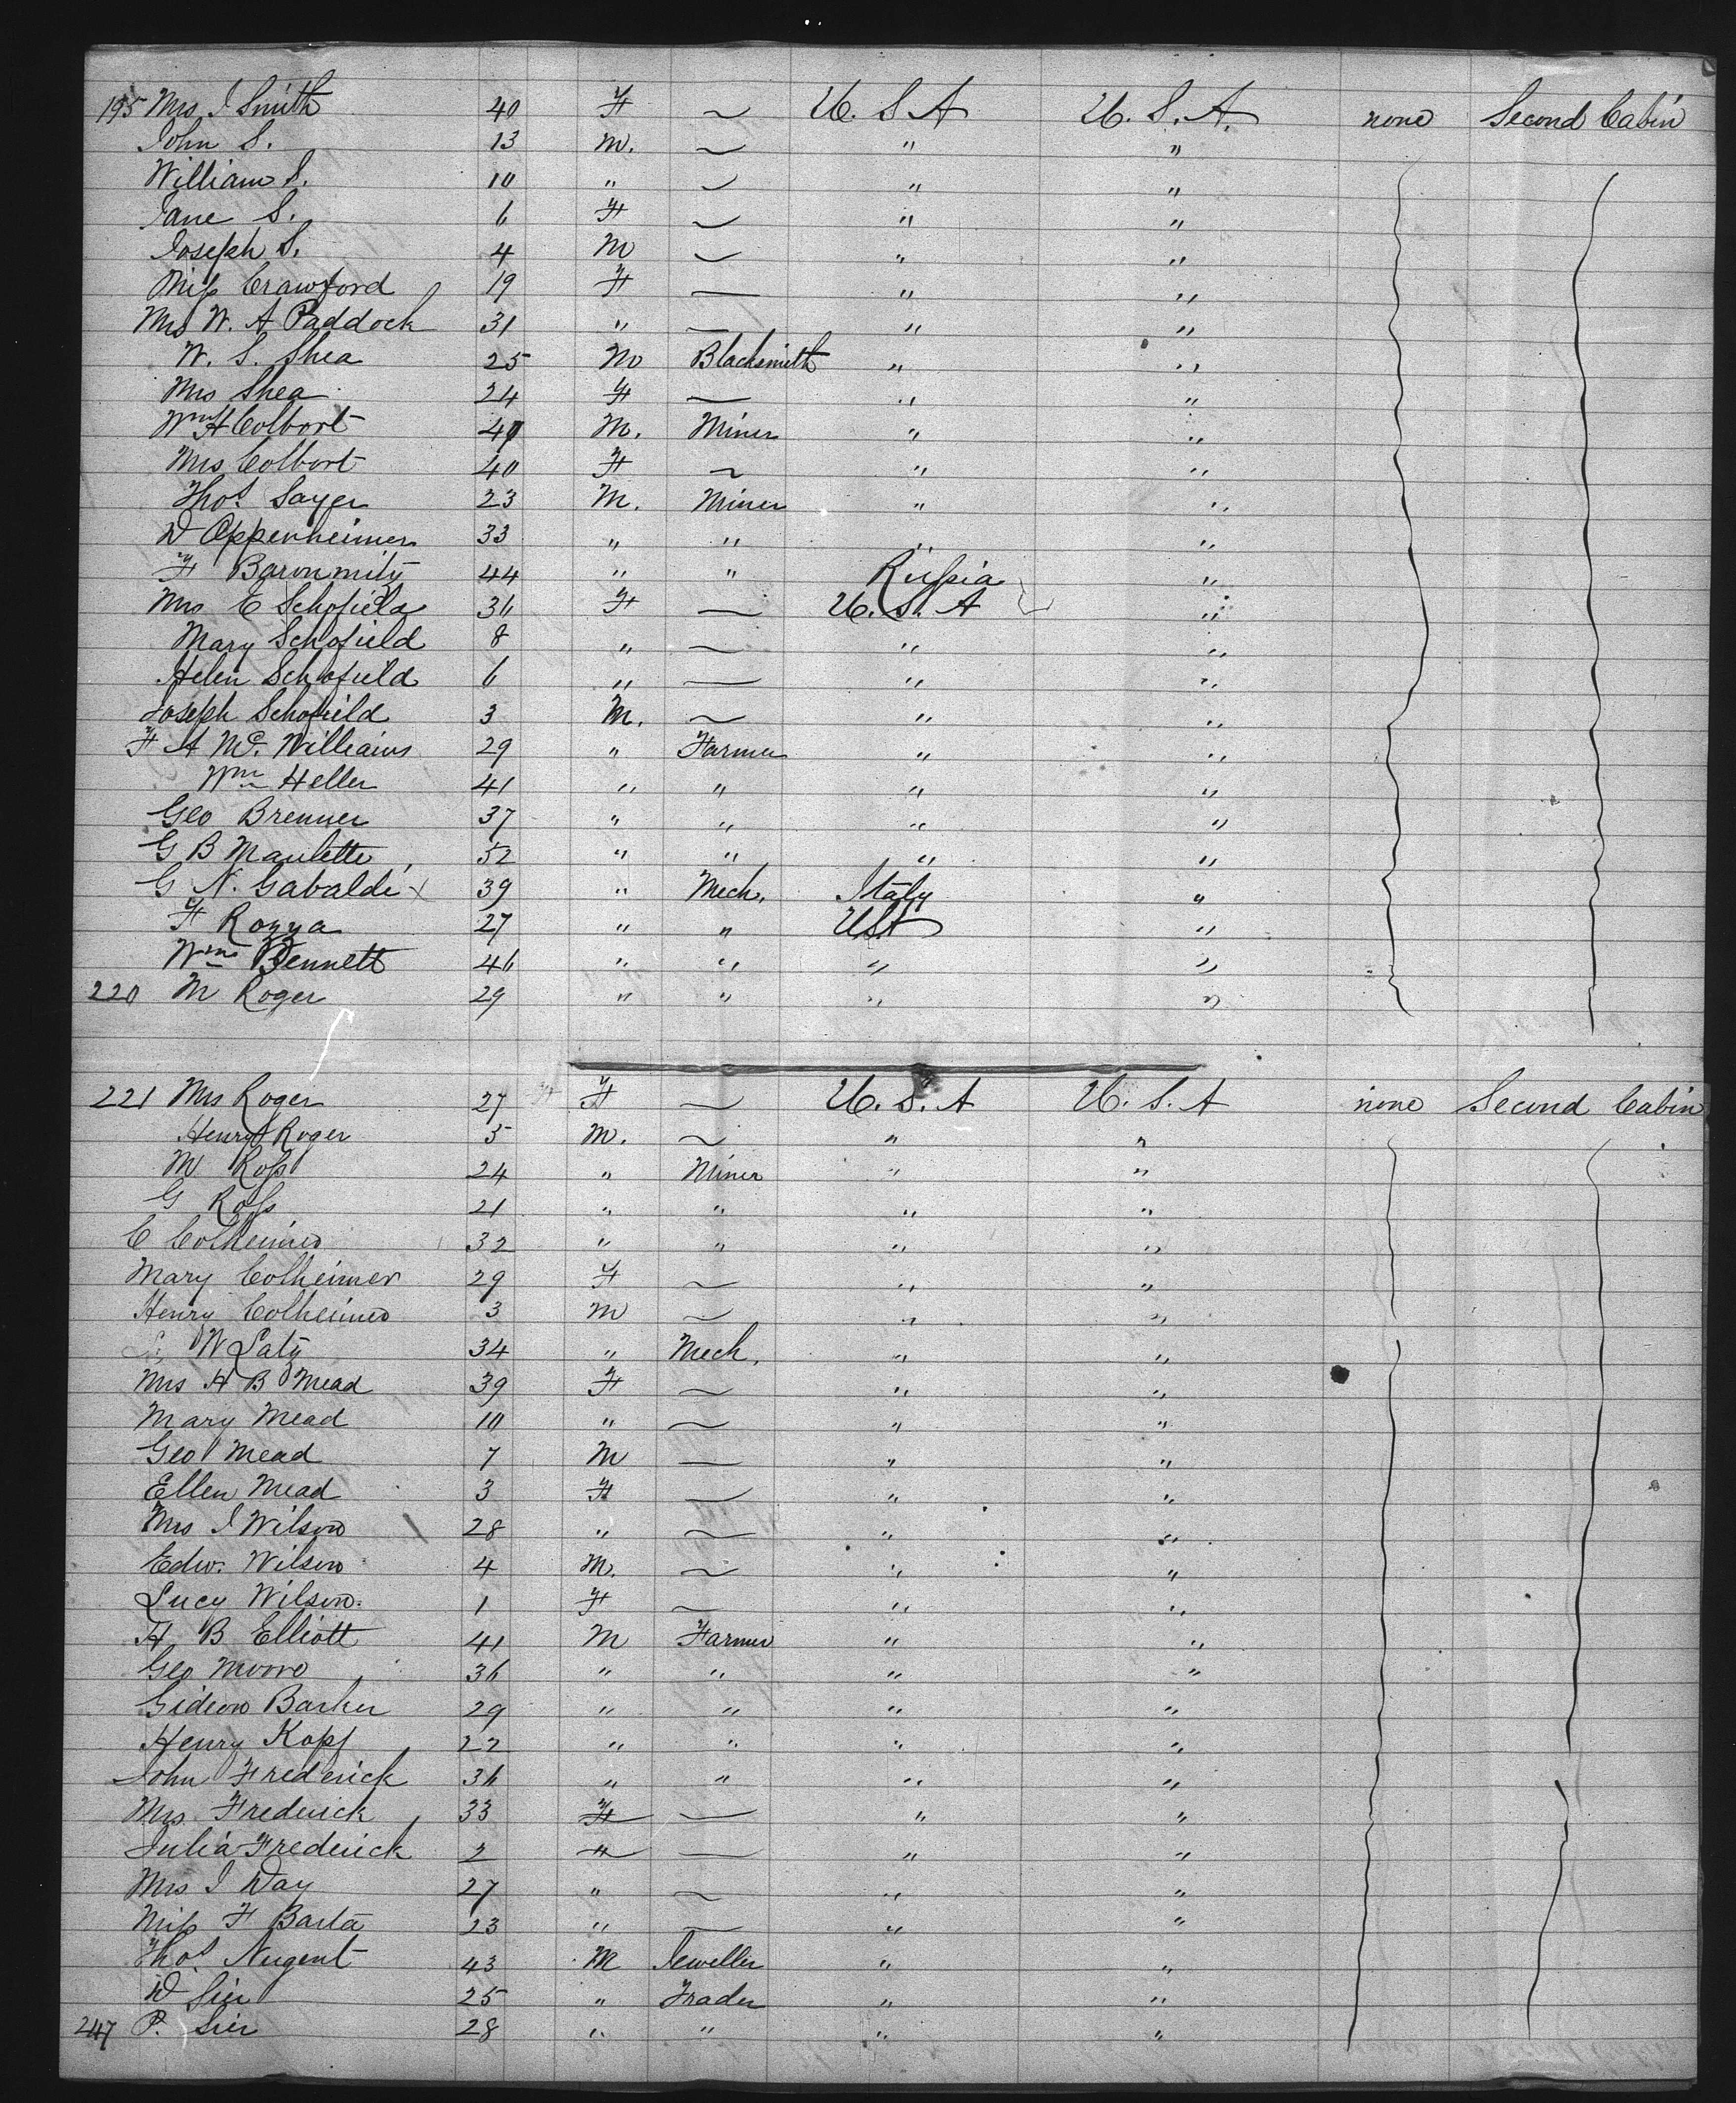 195 Mrs J Smith 40 F ~ U. S. A U. S. A. none Second Cabin
John S. 13 M. ~ " "
William S. 10 " ~ " "
Jane S. 6 F ~ " "
Joseph S. 4 M ~ " "
Miss Crawford 19 F — " "
Mrs W. A Paddock 31 " — " "
W. S. Shea 25 M Blacksmith " "
Mrs Shea 24 F — " "
Wm H Colbort M. Miner " "
Mrs Colbort 40 F ~ " "
Thos Sayer 23 M. Miner " "
D Oppenheimer 33 " " " "
F 44 " " Russia "
Mrs E Schofield 36 F — U. S. A "
Mary Schofield 8 " — " "
Helen Schofield 6 " — " "
Joseph Schofield 3 M. ~ " "
F A Mc. Williams 29 " Farmer " "
Wm Heller 41 " " " "
Geo Brenner 37 " " " "
G B Maulette 52 " " " "
G N. Gabaldi x 39 " Mech. Italy "
F Rozza 27 " " USA "
Wm Bennett 46 " " " "
220 M Roger 29 " " " "
221 Mrs Roger 27 F ~ U. S. A U. S. A none Second Cabin
Henry Roger 5 M. ~ " "
M Ross 24 " Miner " "
G Ross 21 " " " "
C Colheimer 32 " " " "
Mary Colheimer 29 F ~ " "
Henry Colheimer 3 M ~ " "
W Laty 34 " Mech. " "
Mrs H B Mead 39 F ~ " "
Mary Mead 10 " ~ " "
Geo Mead 7 M — " "
Ellen Mead 3 F — " "
Mrs J Wilson 28 " ~ " "
Edw. Wilson 4 M. ~ " "
Lucy Wilson. 1 F ~ " "
H B Elliott 41 M Farmer " "
Geo 36 " " " "
Gideon Barker 29 " " " "
Henry Kopf 22 " " " "
John Frederick 36 " " " "
Mrs Frederick 33 F — " "
Julia Frederick 2 " — " "
Mrs J Day 27 " ~ " "
Miss F Barta 23 " — " "
Thos Nugent 43 M Jeweller " "
D Sier 25 " Trader " "
247 P. Sier 28 " " " "